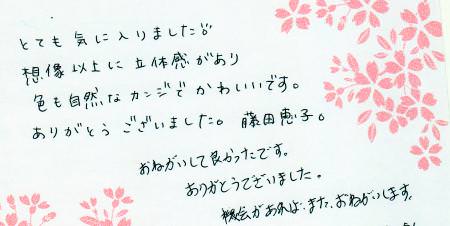 とても気に入りました!!
想像以上に立体感があり
色も自然なカンジでかわいいです。
ありがとうございました。 藤田恵子。
おねがいして良かったです。
ありがとうございました。
機会があれば、また、おねがいします。